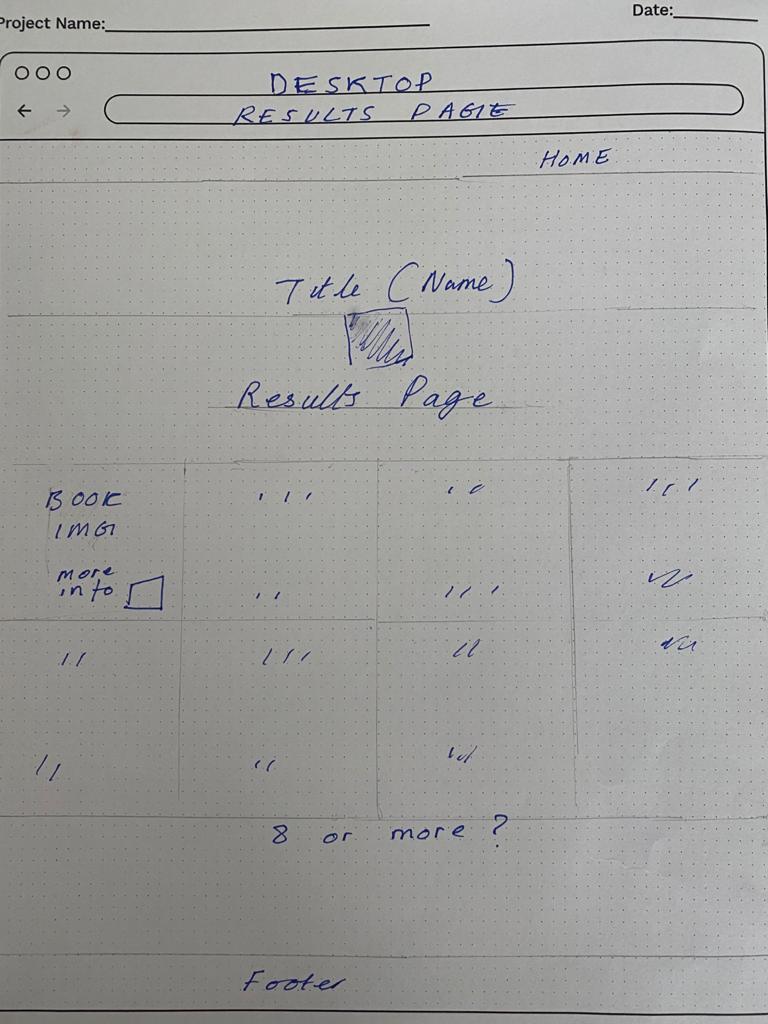 Project Name:
Date:
DESKTOP
RESULTS PAGE
HOME
Title (Name)
Results Page
BOOK
IMG
more
info
8 or more ?
Footer